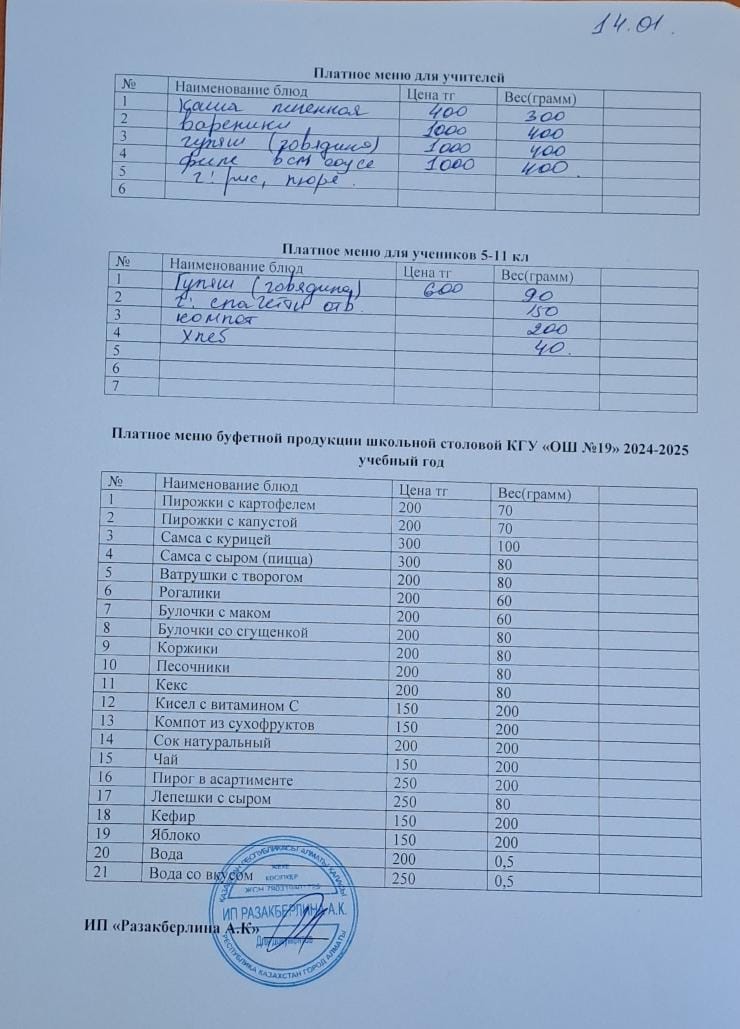 14.01.
Платное меню для учителей
№ Наименование блюд Цена тг Вес(грамм)
1 Каша пшенная 400 300
2 Вареники 1000 400
3 гуляш (говядина) 1000 400
4 филе в см соусе 1000 400
5 г: рис, пюре.
6
Платное меню для учеников 5-11 кл
№ Наименование блюд Цена тг Вес(грамм)
1 Гуляш (говядина) 600 90
2 г: спагетти отв 150
3 компот 200
4 Хлеб 40.
5
6
7
Платное меню буфетной продукции школьной столовой КГУ «ОШ №19» 2024-2025
учебный год
№ Наименование блюд Цена тг Вес(грамм)
1 Пирожки с картофелем 200 70
2 Пирожки с капустой 200 70
3 Самса с курицей 300 100
4 Самса с сыром (пицца) 300 80
5 Ватрушки с творогом 200 80
6 Рогалики 200 60
7 Булочки с маком 200 60
8 Булочки со сгущенкой 200 80
9 Коржики 200 80
10 Песочники 200 80
11 Кекс 200 80
12 Кисел с витамином С 150 200
13 Компот из сухофруктов 150 200
14 Сок натуральный 200 200
15 Чай 150 200
16 Пирог в асартименте 250 200
17 Лепешки с сыром 250 80
18 Кефир 150 200
19 Яблоко 150 200
20 Вода 200 0,5
21 Вода со вкусом 250 0,5
ИП «Разакберлина А.К»
ҚАЗАҚСТАН РЕСПУБЛИКАСЫ АЛМАТЫ ҚАЛАСЫ
ЖЕКЕ
КӘСІПКЕР
ЖСН
ИП РАЗАКБЕРЛИНА А.К.
Для документов
РЕСПУБЛИКА КАЗАХСТАН ГОРОД АЛМАТЫ